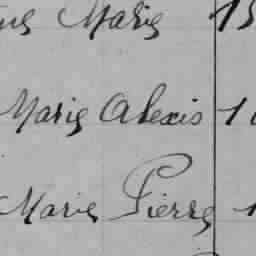 Marie
Marie Alexis 1
Marie Pierre 1